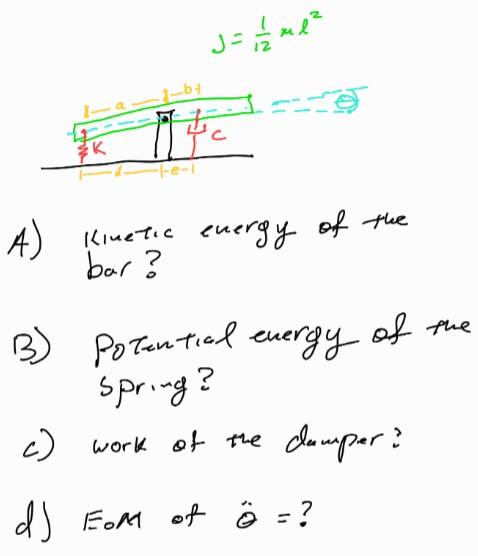 J = 1/12 m l²
a
b
K
C
d
e
θ
A) Kinetic energy of the
bar?
B) Potential energy of the
spring?
c) work of the damper?
d) EoM of θ̈ = ?